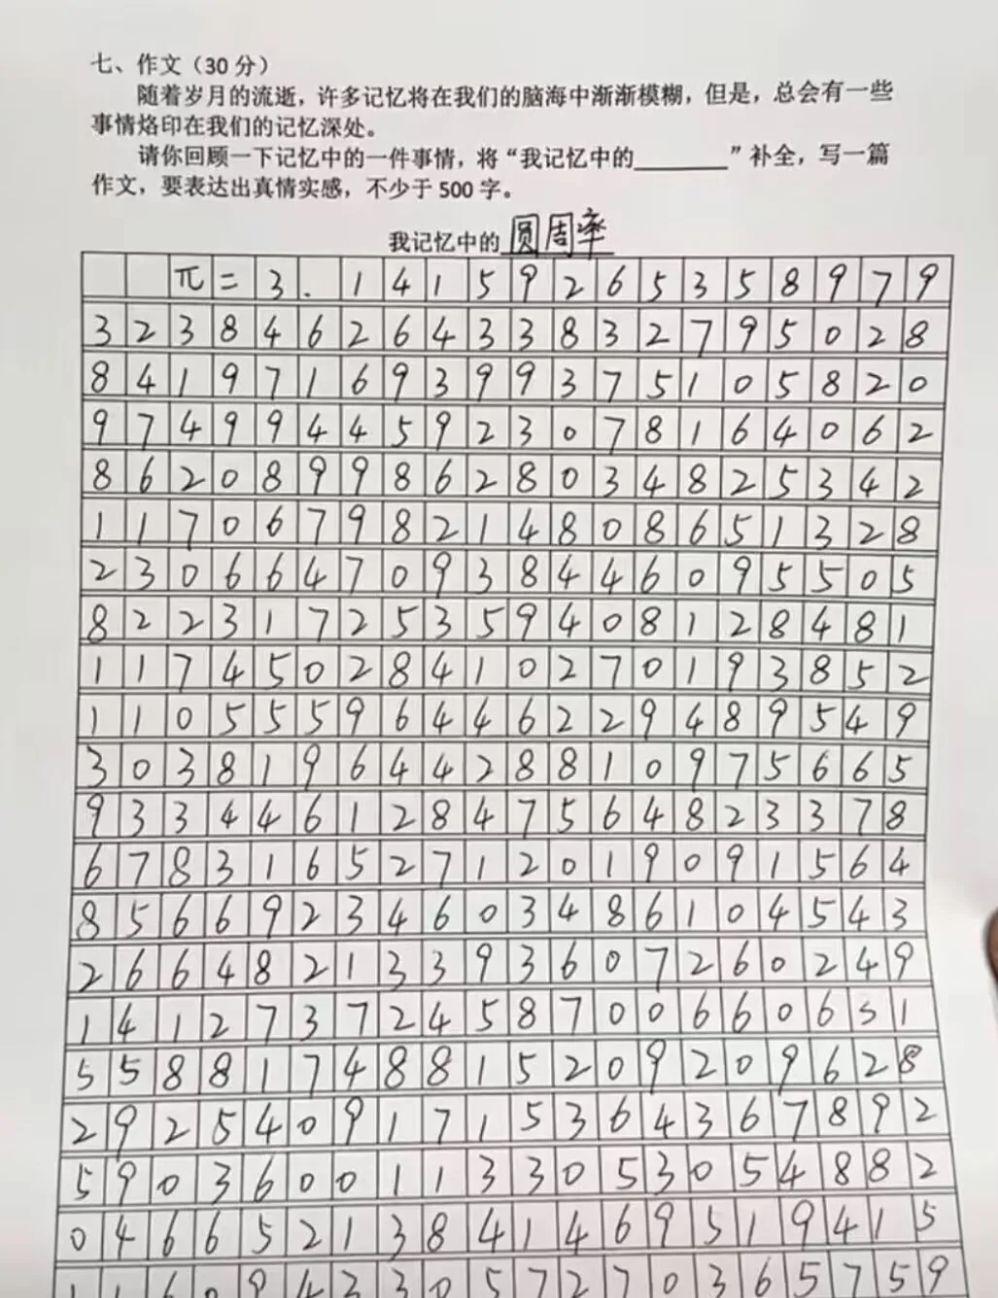 七、作文（30 分）
随着岁月的流逝，许多记忆将在我们的脑海中渐渐模糊，但是，总会有一些
事情烙印在我们的记忆深处。
请你回顾一下记忆中的一件事情，将“我记忆中的________”补全，写一篇
作文，要表达出真情实感，不少于 500 字。
我记忆中的 圆周率
π=3.14159265358979
32384626433832795028
84197169399375105820
97499445923078164062
86208998628034825342
11706798214808651328
23066470938446095505
82231725359408128481
11745028410270193852
11055596446229489549
30381964428810975665
93344612847564823378
67831652712019091564
85669234603486104543
26648213393607260249
14127372458700660631
55881748815209209628
29254091715364367892
59036001133053054882
04665213841469519415
11609433057270365759